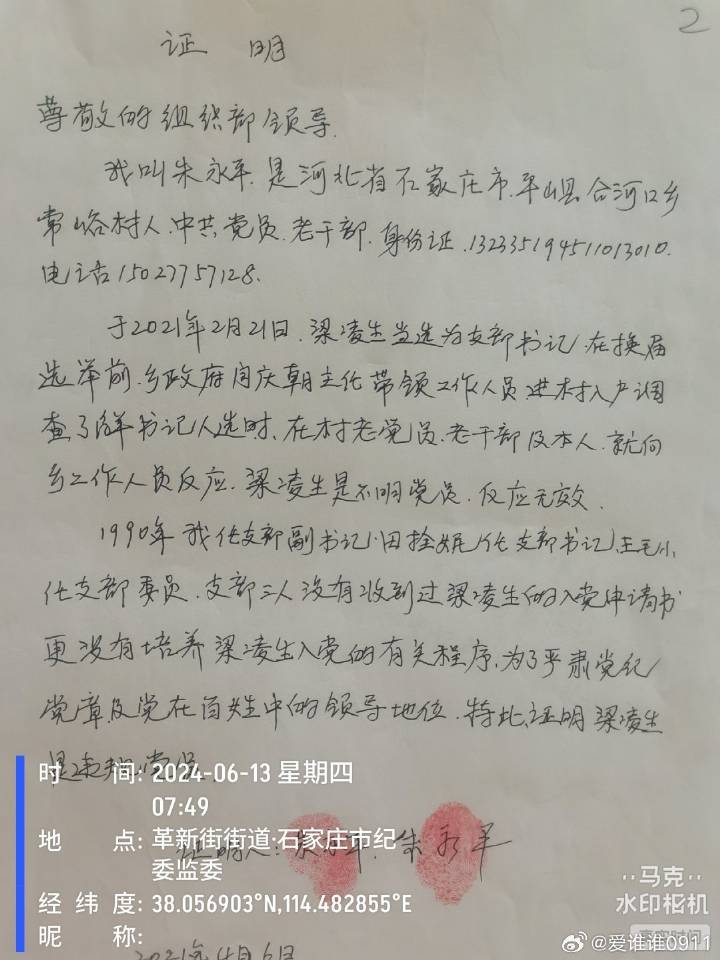 2
证 明
尊敬的组织部领导
我叫朱永平.是河北省石家庄市.平山县合河口乡
常峪村人.中共党员.老干部.身份证.132335194511013010.
电话15027757128.
于2021年2月21日.梁凌生当选为支部书记.在换届
选举前.乡政府闫庆朝主任带领工作人员进村入户调
查了解书记人选时.在村老党员.老干部及本人.就向
乡工作人员反应.梁凌生是不明党员.反应无效.
1990年我任支部副书记.田拴妮任支部书记.王毛小
任支部委员.支部三人没有收到过梁凌生的入党申请书
更没有培养梁凌生入党的有关程序.为了严肃党纪
党章及党在百姓中的领导地位.特此证明梁凌生
是
证明人:朱永平.朱永平
2021年4月6日
时 间:2024-06-13 星期四
07:49
地 点:革新街街道·石家庄市纪
委监委
经纬度:38.056903°N,114.482855°E
昵 称:
马克
水印相机
真实时间
@爱谁谁0911